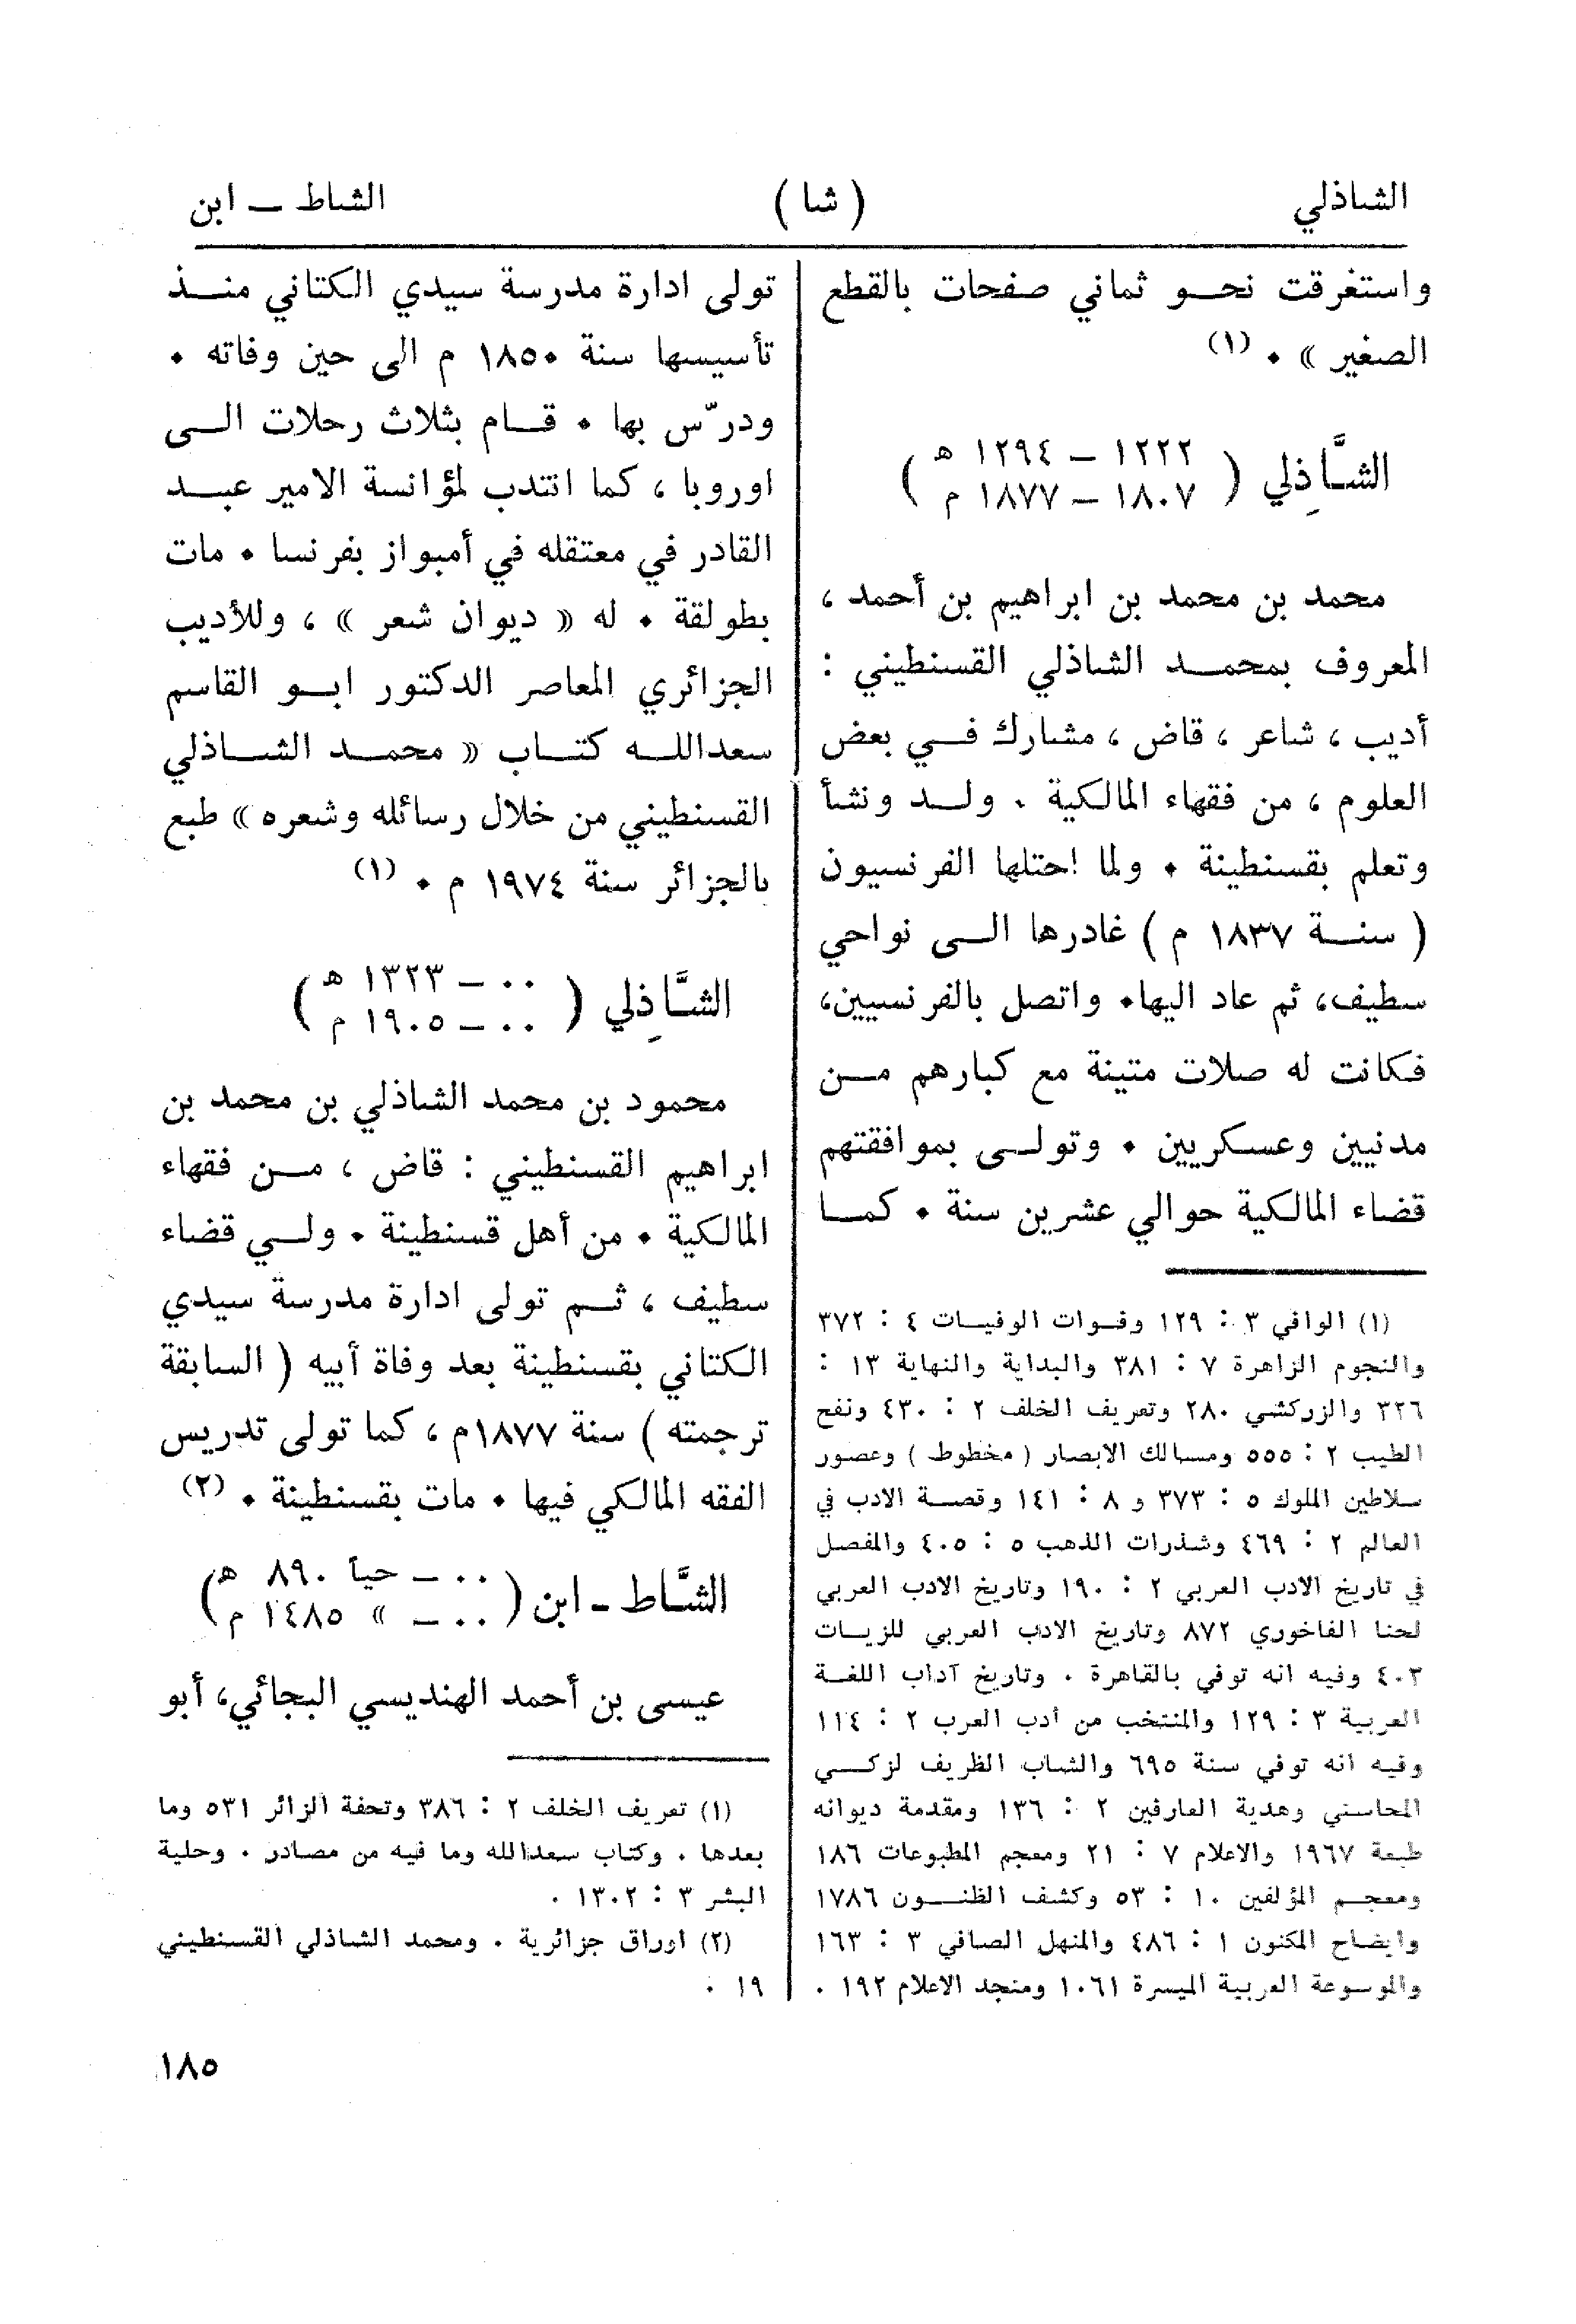 الشاذلي
( شا )
الشاط ــ ابن
واستغرقت نحـو ثماني صفحات بالقطع
الصغير » . (١)
الشَّاذِلي ( ١٢٢٢ – ١٢٩٤ ه
١٨٠٧ – ١٨٧٧ م )
محمد بن محمد بن ابراهيم بن أحمد ،
المعروف بمحمـد الشاذلي القسنطيني :
أديب ، شاعر ، قاض ، مشارك فـي بعض
العلوم ، من فقهاء المالكية . ولـد ونشأ
وتعلم بقسنطينة . ولما احتلها الفرنسيون
( سنـة ١٨٣٧ م ) غادرها الـى نواحي
سطيف، ثم عاد اليها. واتصل بالفرنسيين،
فكانت له صلات متينة مع كبارهم مـن
مدنيين وعسكريين . وتولـى بموافقتهم
قضاء المالكية حوالي عشرين سنة . كمـا
(١) الوافي ٣ : ١٢٩ وفـوات الوفيـات ٤ : ٣٧٢
والنجوم الزاهرة ٧ : ٣٨١ والبداية والنهاية ١٣ :
٣٢٦ والزركشي ٢٨٠ وتعريف الخلف ٢ : ٤٣٠ ونفح
الطيب ٢ : ٥٥٥ ومسالك الابصار ( مخطوط ) وعصور
سلاطين الملوك ٥ : ٣٧٣ و ٨ : ١٤١ وقصـة الادب في
العالم ٢ : ٤٦٩ وشذرات الذهب ٥ : ٤٠٥ والمفصل
في تاريخ الادب العربي ٢ : ١٩٠ وتاريخ الادب العربي
لحنا الفاخوري ٨٧٢ وتاريخ الادب العربي للزيـات
٤٠٣ وفيه انه توفي بالقاهرة . وتاريخ آداب اللغـة
العربية ٣ : ١٢٩ والمنتخب من أدب العرب ٢ : ١١٤
وفيه انه توفي سنة ٦٩٥ والشاب الظريف لزكـي
المحاسني وهدية العارفين ٢ : ١٣٦ ومقدمة ديوانه
طبعة ١٩٦٧ والاعلام ٧ : ٢١ ومعجم المطبوعات ١٨٦
ومعجـم المؤلفين ١٠ : ٥٣ وكشف الظنـون ١٧٨٦
وايضاح المكنون ١ : ٤٨٦ والمنهل الصافي ٣ : ١٦٣
والموسوعة العربية الميسرة ١٠٦١ ومنجد الاعلام ١٩٢ .
تولى ادارة مدرسة سيدي الكتاني منـذ
تأسيسها سنة ١٨٥٠ م الى حين وفاته .
ودرّس بها . قـام بثلاث رحلات الـى
اوروبا ، كما انتدب لمؤانسة الامير عبـد
القادر في معتقله في أمبواز بفرنسا . مات
بطولقة . له « ديوان شعر » ، وللأديب
الجزائري المعاصر الدكتور ابـو القاسم
سعدالله كتـاب « محمـد الشـاذلي
القسنطيني من خلال رسائله وشعره » طبع
بالجزائر سنة ١٩٧٤ م . (١)
الشَّاذِلي ( ٠٠ – ١٣٢٣ ه
٠٠ – ١٩٠٥ م )
محمود بن محمد الشاذلي بن محمد بن
ابراهيم القسنطيني : قاض ، مـن فقهاء
المالكية . من أهل قسنطينة . ولـي قضاء
سطيف ، ثـم تولى ادارة مدرسة سيدي
الكتاني بقسنطينة بعد وفاة أبيه ( السابقة
ترجمته ) سنة ١٨٧٧م ، كما تولى تدريس
الفقه المالكي فيها . مات بقسنطينة . (٢)
الشَّاط - ابن ( ٠٠ – حيا ٨٩٠ ه
٠٠ – » ١٤٨٥ م )
عيسى بن أحمد الهنديسي البجائي، أبو
(١) تعريف الخلف ٢ : ٣٨٦ وتحفة الزائر ٥٣١ وما
بعدها . وكتاب سعدالله وما فيه من مصادر . وحلية
البشر ٣ : ١٣٠٢ .
(٢) اوراق جزائرية . ومحمد الشاذلي القسنطيني
١٩ .
١٨٥